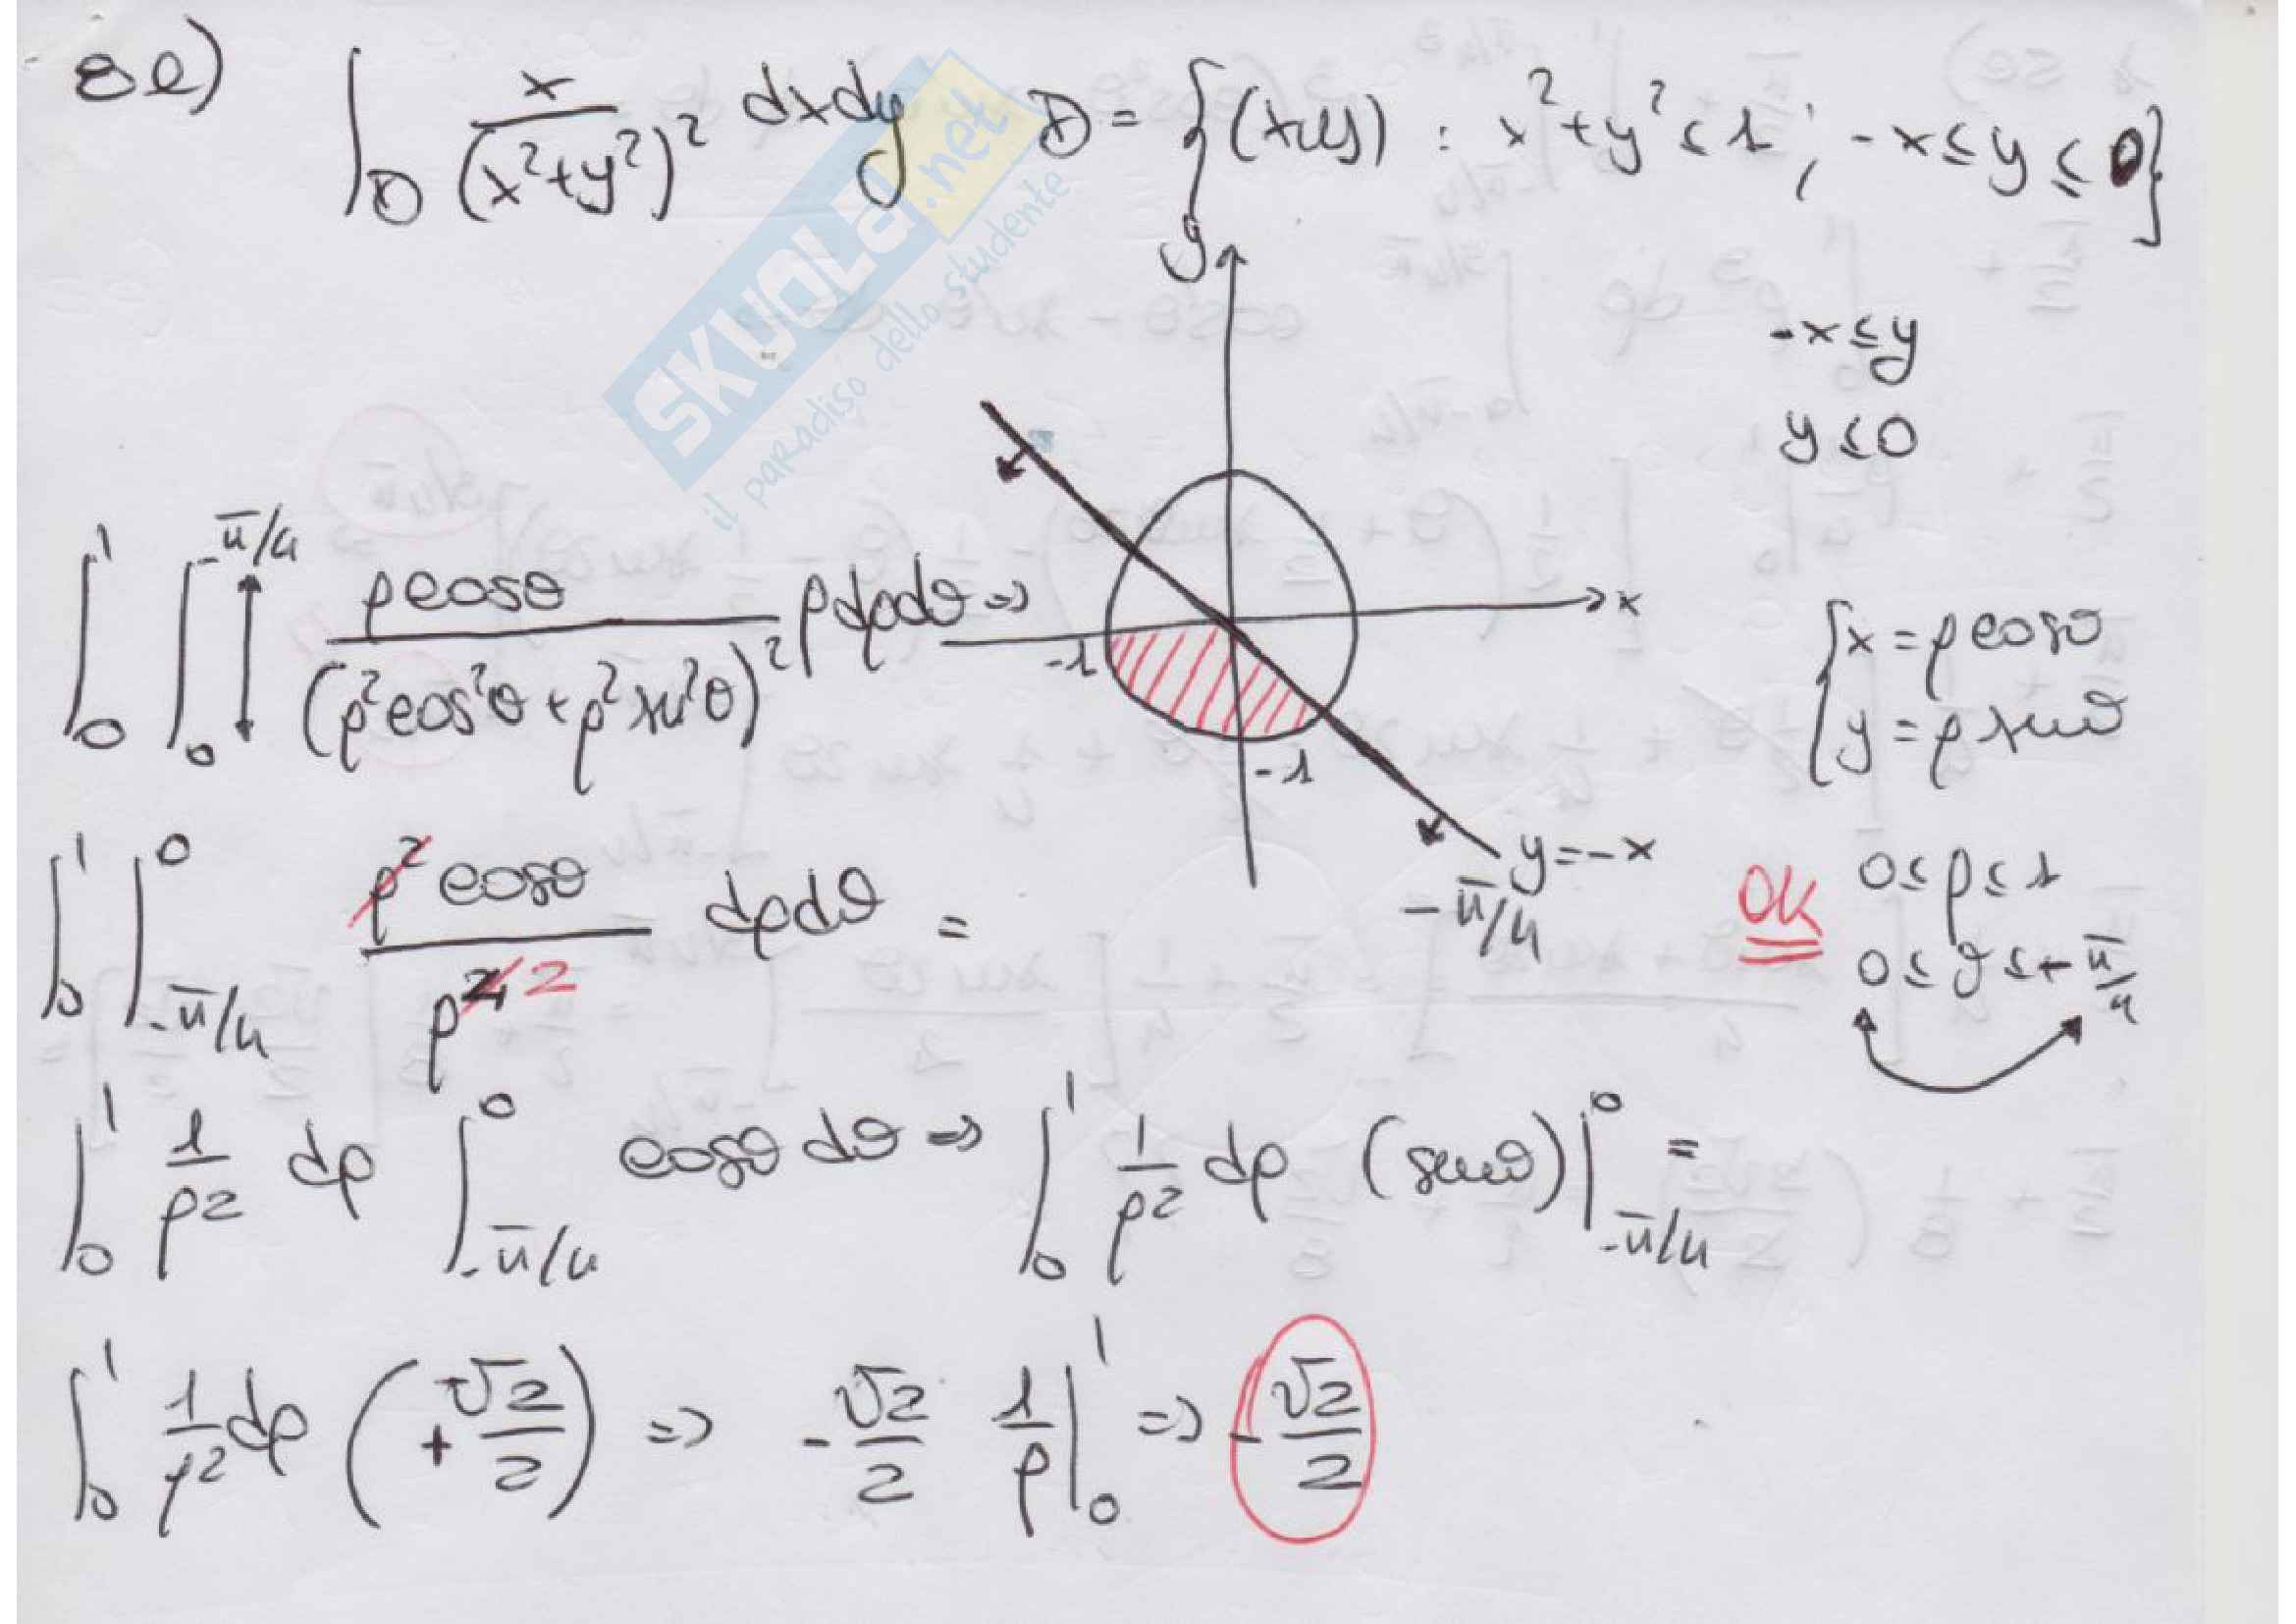 8e) ∫_D x/(x²+y²)² dxdy D = {(x,y) : x²+y² ≤ 1 ; -x ≤ y ≤ 0}
SKUOLA.net
il paradiso dello studente
y
-x ≤ y
y ≤ 0
∫_0^1 ∫_0^{-π/4} ρcosθ/(ρ²cos²θ+ρ²sin²θ)² ρdρdθ ⇒
x
-1
-1
{x = ρcosθ
y = ρsinθ
y=-x
-π/4
∫_0^1 ∫_{-π/4}^0 ρ²cosθ/ρ⁴ 2 dρdθ =
OK 0 ≤ ρ ≤ 1
0 ≤ θ ≤ -π/4
∫_0^1 1/ρ² dρ ∫_{-π/4}^0 cosθ dθ ⇒ ∫_0^1 1/ρ² dρ (senθ)|_{-π/4}^0 =
∫_0^1 1/ρ² dρ (+√2/2) ⇒ -√2/2 1/ρ|_0^1 ⇒ -√2/2